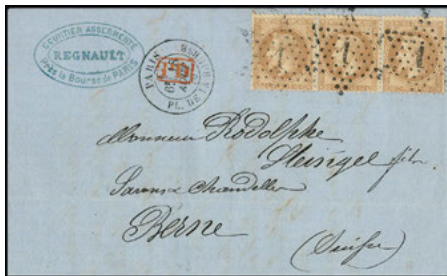 COURTIER ASSERMENTÉ
REGNAULT
Près la Bourse de PARIS
PARIS
PL. DE LA BOURSE
P.D.
1
1
1
Monsieur Rodolphe
fils
Savons & Chandelles
Berne
(Suisse)